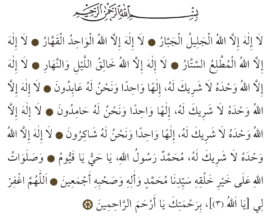 بِسْمِ اللَّهِ الرَّحْمَٰنِ الرَّحِيمِ
لَا إِلَهَ إِلَّا اللهُ الْجَلِيلُ الْجَبَّارُ ۞ لَا إِلَهَ إِلَّا اللهُ الْوَاحِدُ الْقَهَّارُ ۞ لَا إِلَهَ
إِلَّا اللهُ الْمُطَّلِعُ السَّتَّارُ ۞ لَا إِلَهَ إِلَّا اللهُ خَالِقُ اللَّيْلِ وَالنَّهَارِ ۞ لَا إِلَهَ إِلَّا
اللهُ وَحْدَهُ لَا شَرِيكَ لَهُ، إِلَهًا وَاحِدًا وَنَحْنُ لَهُ عَابِدُونَ ۞ لَا إِلَهَ إِلَّا
اللهُ وَحْدَهُ لَا شَرِيكَ لَهُ، إِلَهًا وَاحِدًا وَنَحْنُ لَهُ حَامِدُونَ ۞ لَا إِلَهَ إِلَّا
اللهُ وَحْدَهُ لَا شَرِيكَ لَهُ، إِلَهًا وَاحِدًا وَنَحْنُ لَهُ شَاكِرُونَ ۞ لَا إِلَهَ إِلَّا اللهُ
وَحْدَهُ لَا شَرِيكَ لَهُ، مُحَمَّدٌ رَسُولُ اللهِ، يَا حَيُّ يَا قَيُّومُ ۞ وَصَلَوَاتُ
اللهِ عَلَى خَيْرِ خَلْقِهِ سَيِّدِنَا مُحَمَّدٍ وَآلِهِ وَصَحْبِهِ أَجْمَعِينَ ۞ اَللَّهُمَّ اغْفِرْ
لِي [يَا اَللهُ (٣)]، بِرَحْمَتِكَ يَا أَرْحَمَ الرَّاحِمِينَ ۞